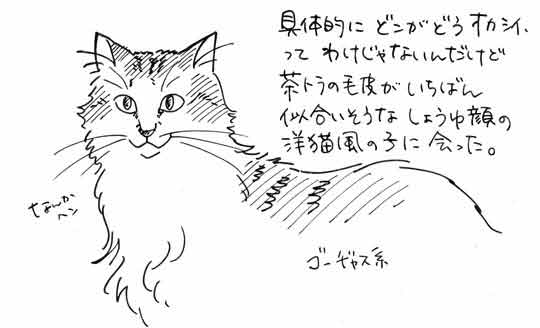 具体的に どこがどう オカシイ、
って わけじゃないんだけど
茶トラの毛皮が いちばん
似合いそうな しょうゆ顔の
洋猫風の子に 会った。
なんか
ヘン
ゴージャス系